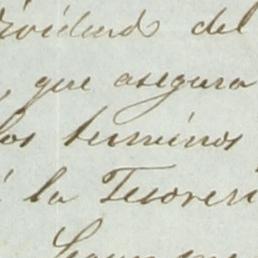 dividendo del
, que asegura
los terminos
la Tesoreri